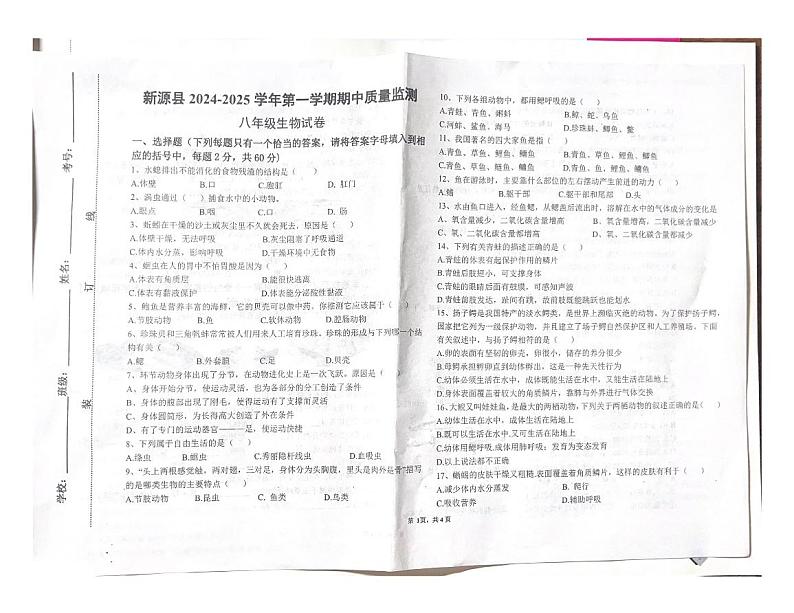 学校：
班级：
姓名：
考号：
装
订
线
新源县 2024-2025 学年第一学期期中质量监测
八年级生物试卷
一、选择题（下列每题只有一个恰当的答案，请将答案字母填入到相
应的括号中，每题 2 分，共 60 分）
1、水螅排出不能消化的食物残渣的结构是（ ）
A.体壁 B.口 C.腹肛 D. 肛门
2、涡虫通过（ ）捕食水中的小动物。
A.眼点 B.咽 C.口 D. 肠
3、蚯蚓在干燥的沙土或灰尘里不久就会死去，原因是（ ）
A.体壁干燥，无法呼吸 B.灰尘阻塞了呼吸通道
C.体内水分蒸，影响呼吸 D.干燥环境中无食物
4、蛔虫在人的胃中不怕胃酸是因为（ ）
A.体表有角质层 B.能很快逃离
C.体表有黏液保护 D.体表能分泌碱性黏液
5、鲍鱼是营养丰富的海鲜，它的贝壳可以做中药，你推测它应该属于（ ）
A.节肢动物 B.鱼 C.软体动物 D.腔肠动物
6、珍珠贝和三角帆蚌常被人们用来人工培育珍珠。珍珠的形成与下列哪一个结
构有关（ ）
A.鳃 B.外套膜 C.足 D.贝壳
7、环节动物身体出现了分节，在动物进化史上是一次飞跃。原因是（ ）
A、身体开始分节，使运动灵活，也为各部分的分工创造了条件
B、身体的腹部出现了刚毛，使得运动有了支撑而灵活
C、身体圆筒形，为长得高大创造了外在条件
D、有了专门的运动器官———足，使运动快捷
8、下列属于自由生活的是（ ）
A.绦虫 B.蛔虫 C.秀丽隐杆线虫 D.血吸虫
9、“头上两根感觉触，两对翅，三对足，身体分为头胸腹，里头是肉外是骨”描写
的是哪类生物的主要特点（ ）
A.节肢动物 B.昆虫 C. 鱼类 D.鸟类
10、下列各组动物中，都用鳃呼吸的是（ ）
A.青蛙、青鱼、蝌蚪 B.鲸、蛇、乌鱼
C.河蚌、鲨鱼、海马 D.珍珠蚌、鲫鱼、鳖
11、我国著名的四大家鱼是指（ ）
A.青鱼、草鱼、鲤鱼、鳙鱼 B.青鱼、草鱼、鲤鱼、鲫鱼
C.青鱼、草鱼、鲢鱼、鳙鱼 D.青鱼、鱼、鲤鱼、鳙鱼
12、鱼在游泳时，主要靠什么部位的左右摆动产生前进的动力（ ）
A.鳍 B.躯干部 C.躯干部和尾部 D.头
13、水由鱼口进入，经鱼鳃，从鳃盖后流出时，溶解在水中的气体成分的变化是
A、氧含量减少，二氧化碳含量增高 B、氧含量增高，二氧化碳含量减少
C、氧、二氧化碳含量都增高 D、氧、二氧化碳含量都减少
14、下列有关青蛙的描述正确的是（ ）
A.青蛙的体表有起保护作用的鳞片
B.青蛙后肢短小，可支撑身体
C.青蛙的眼睛后面有鼓膜，可感知声波
D.青蛙前肢发达，趾间有蹼，故前肢既能跳跃也能划水
15、扬子鳄是我国特产的淡水鳄类，是世界上濒临灭绝的动物。为了保护扬子鳄，
国家把它列为一级保护动物，并且建立了扬子鳄自然保护区和人工养殖场。下面
有关叙述中，与扬子鳄相符的（ ）
A.卵的表面有坚韧的卵壳，卵很小，储存的养分很少
B.母鳄承担孵卵直到幼体孵出，这是一种先天性行为
C.幼体必须生活在水中，成体既能生活在水中，又能生活在陆地上
D.身体表面覆盖着较大的角质鳞片，靠肺与外界进行气体交换
16、大鲵又叫娃娃鱼，是最大的两栖动物，下列关于两栖动物的叙述正确的是（ ）
A.幼体生活在水中，成体生活在陆地上
B.既可以生活在水中，又可生活在陆地上
C.幼体用鳃呼吸，成体用肺呼吸；发育为变态发育
D.以上说法都不正确
17、蜥蜴的皮肤干燥又粗糙，表面覆盖着角质鳞片，这样的皮肤有利于（ ）
A.减少体内水分蒸发 B. 爬行
C.吸收营养 D.辅助呼吸
第 1页，共 4 页